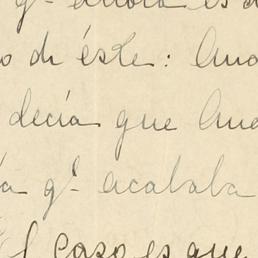 qᵉ ahora es d
o de éste: Ana
decía que Ana
ía qᵉ acababa
l caso es que